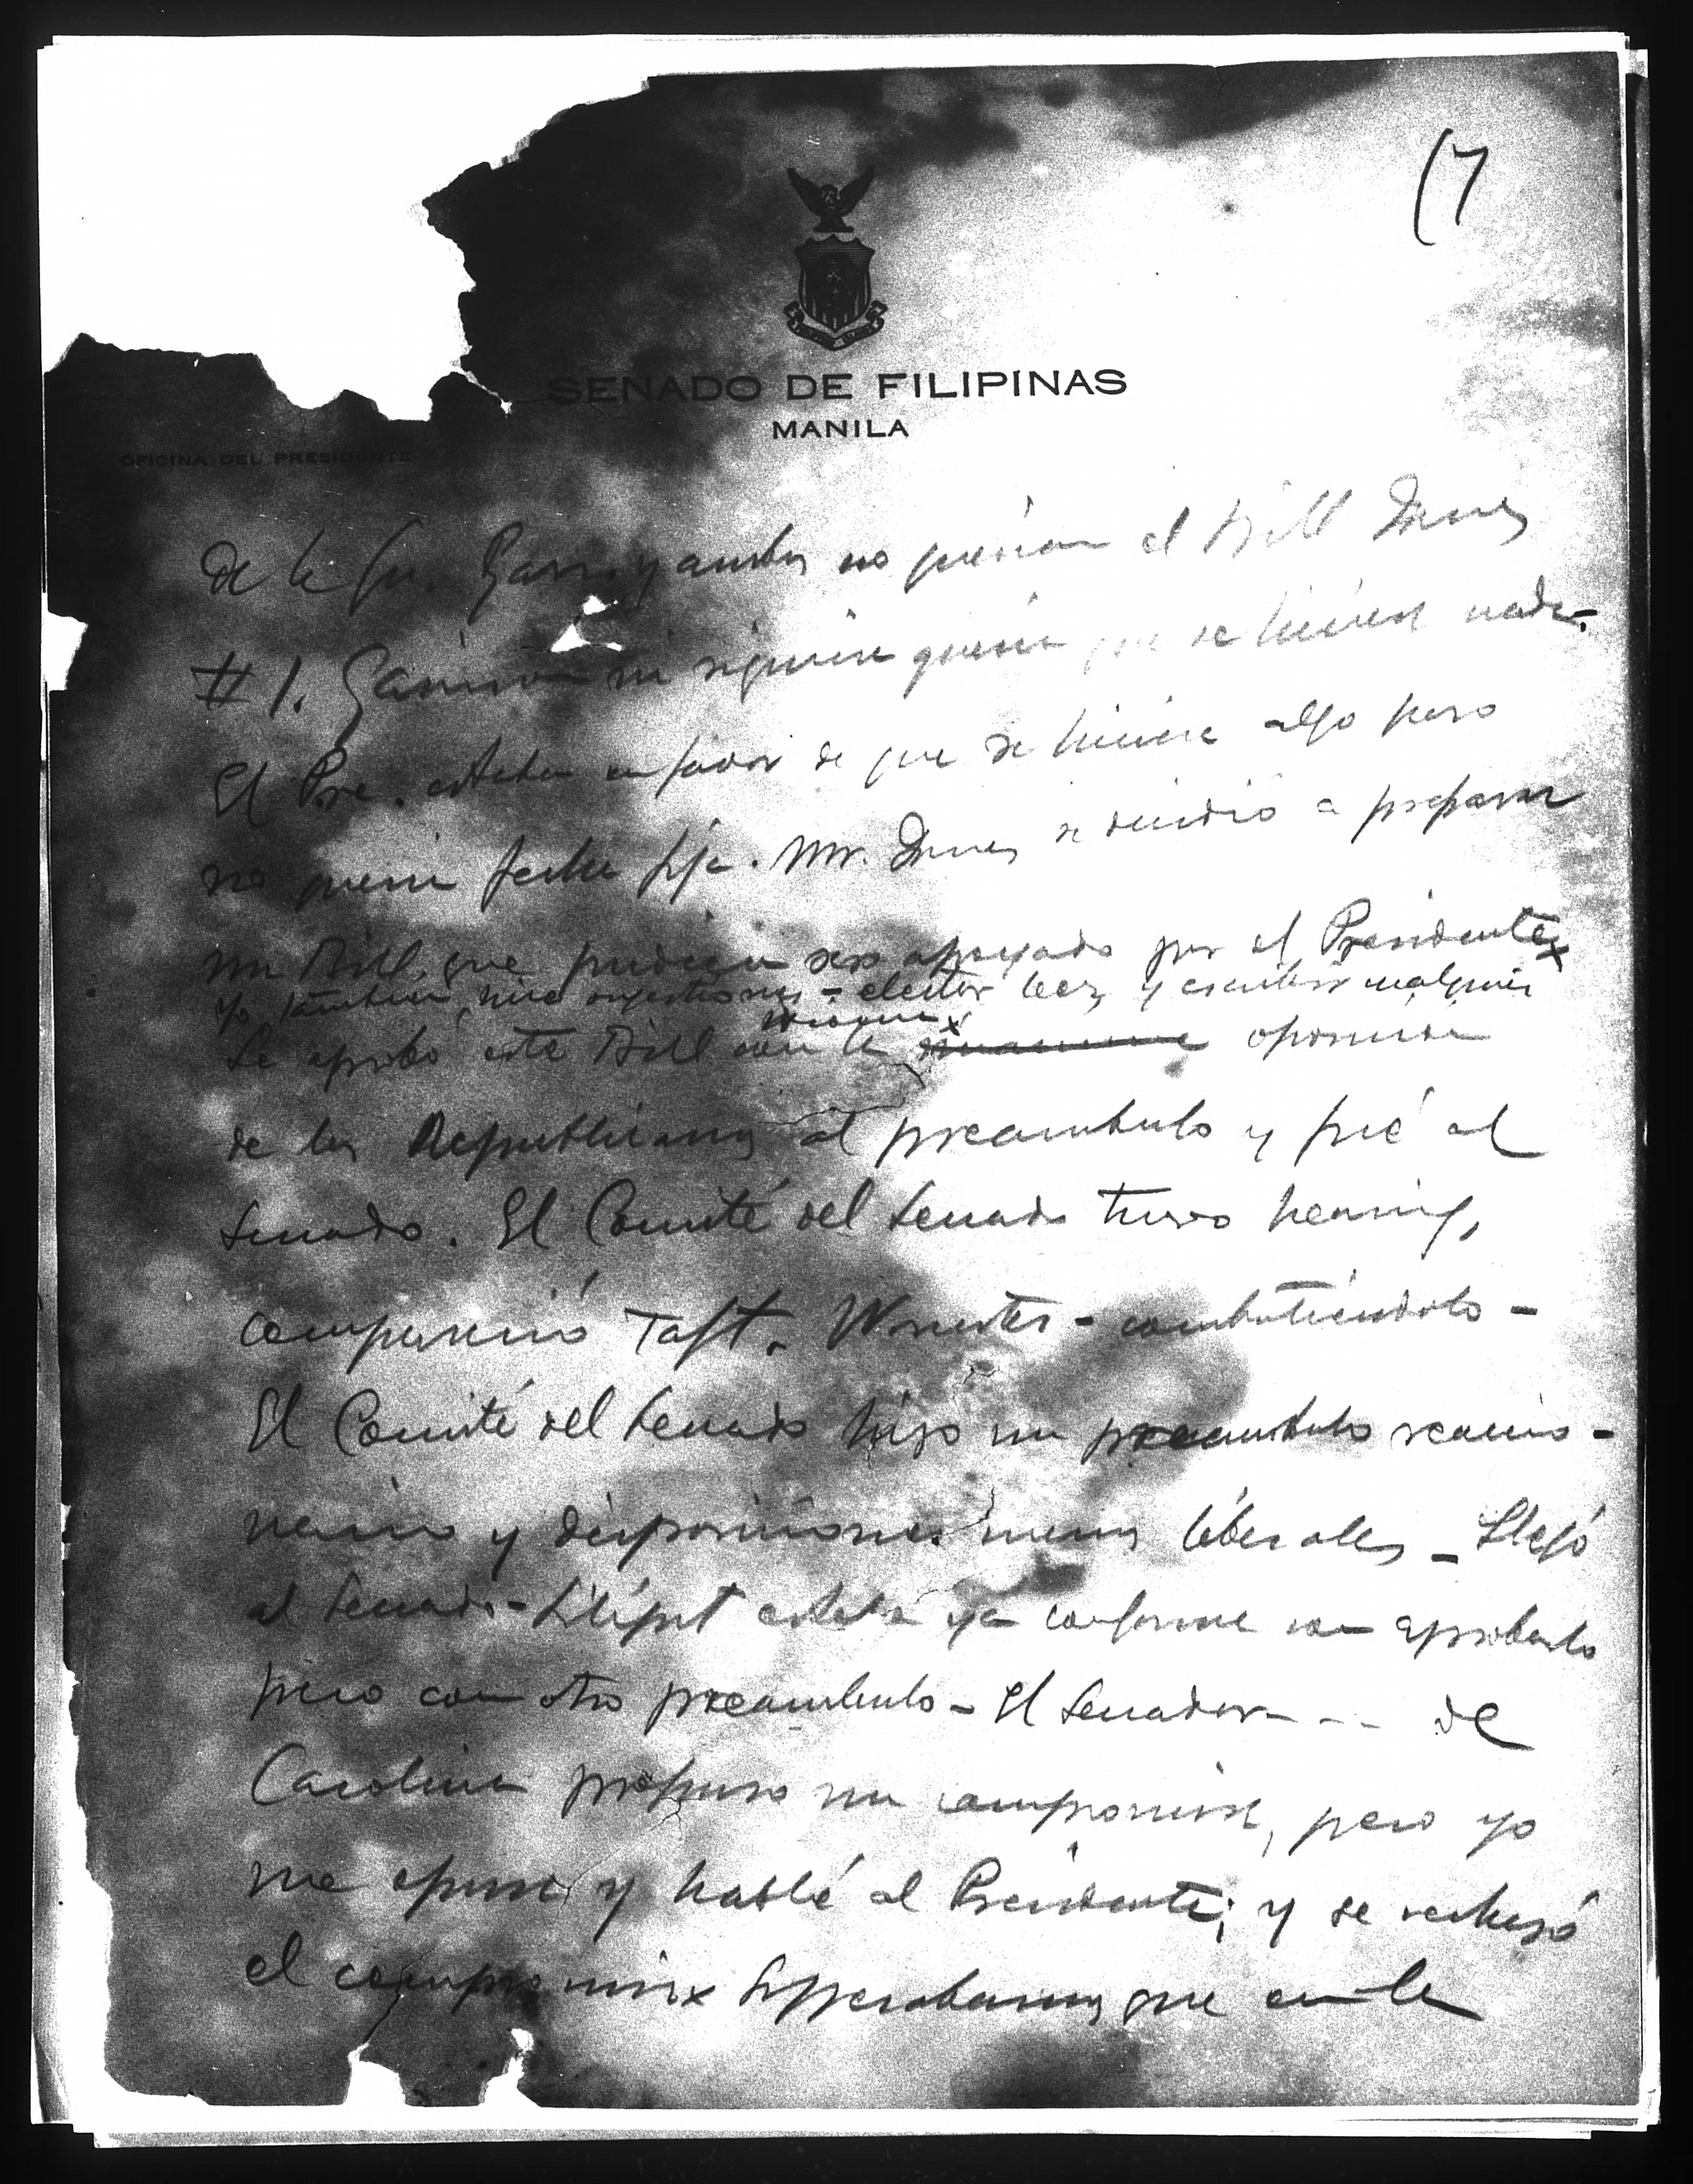 (7
SENADO DE FILIPINAS
MANILA
OFICINA DEL PRESIDENTE
de la Gu. Garr. y ambos no querían el Bill Jones
#1. Garrison ni siquiera quería que se hiciese nada.
El Pre. estaba en favor de que se hiciera algo pero
no quería fecha fija. Mr. Jones se decidió a preparar
un Bill que pudiera ser apoyado por el Presidente x
Yo también hice sugestiones - elector leer y escribir cualquier
Se aprobó este Bill con la oposición
de los Republicanos al preambulo y fué al
Senado. El Comité del Senado tuvo hearing,
compareció Taft. Worcester - combatiéndolo -
El Comité del Senado hizo un preambulo reaccio-
nario y disposiciones menos liberales - Llegó
al Senado - estaba ya conforme con aprobarlo
pero con otro preambulo - El Senador - - - de
Carolina propuso un compromise, pero yo
me opuse y hablé al Presidente; y se rechazó
el compromise x Esperabamos que en la